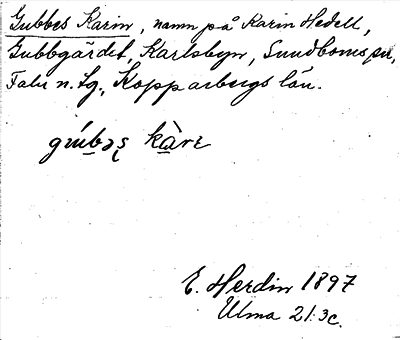 Gubbes Karin, namn på Karin Hedell,
Gubbgärdet, Karlsbyn, Sundborns sn,
Falu n. tg., Kopparbergs län.
kàrɪ
E. Herdin 1897
Ulma 21:3c.